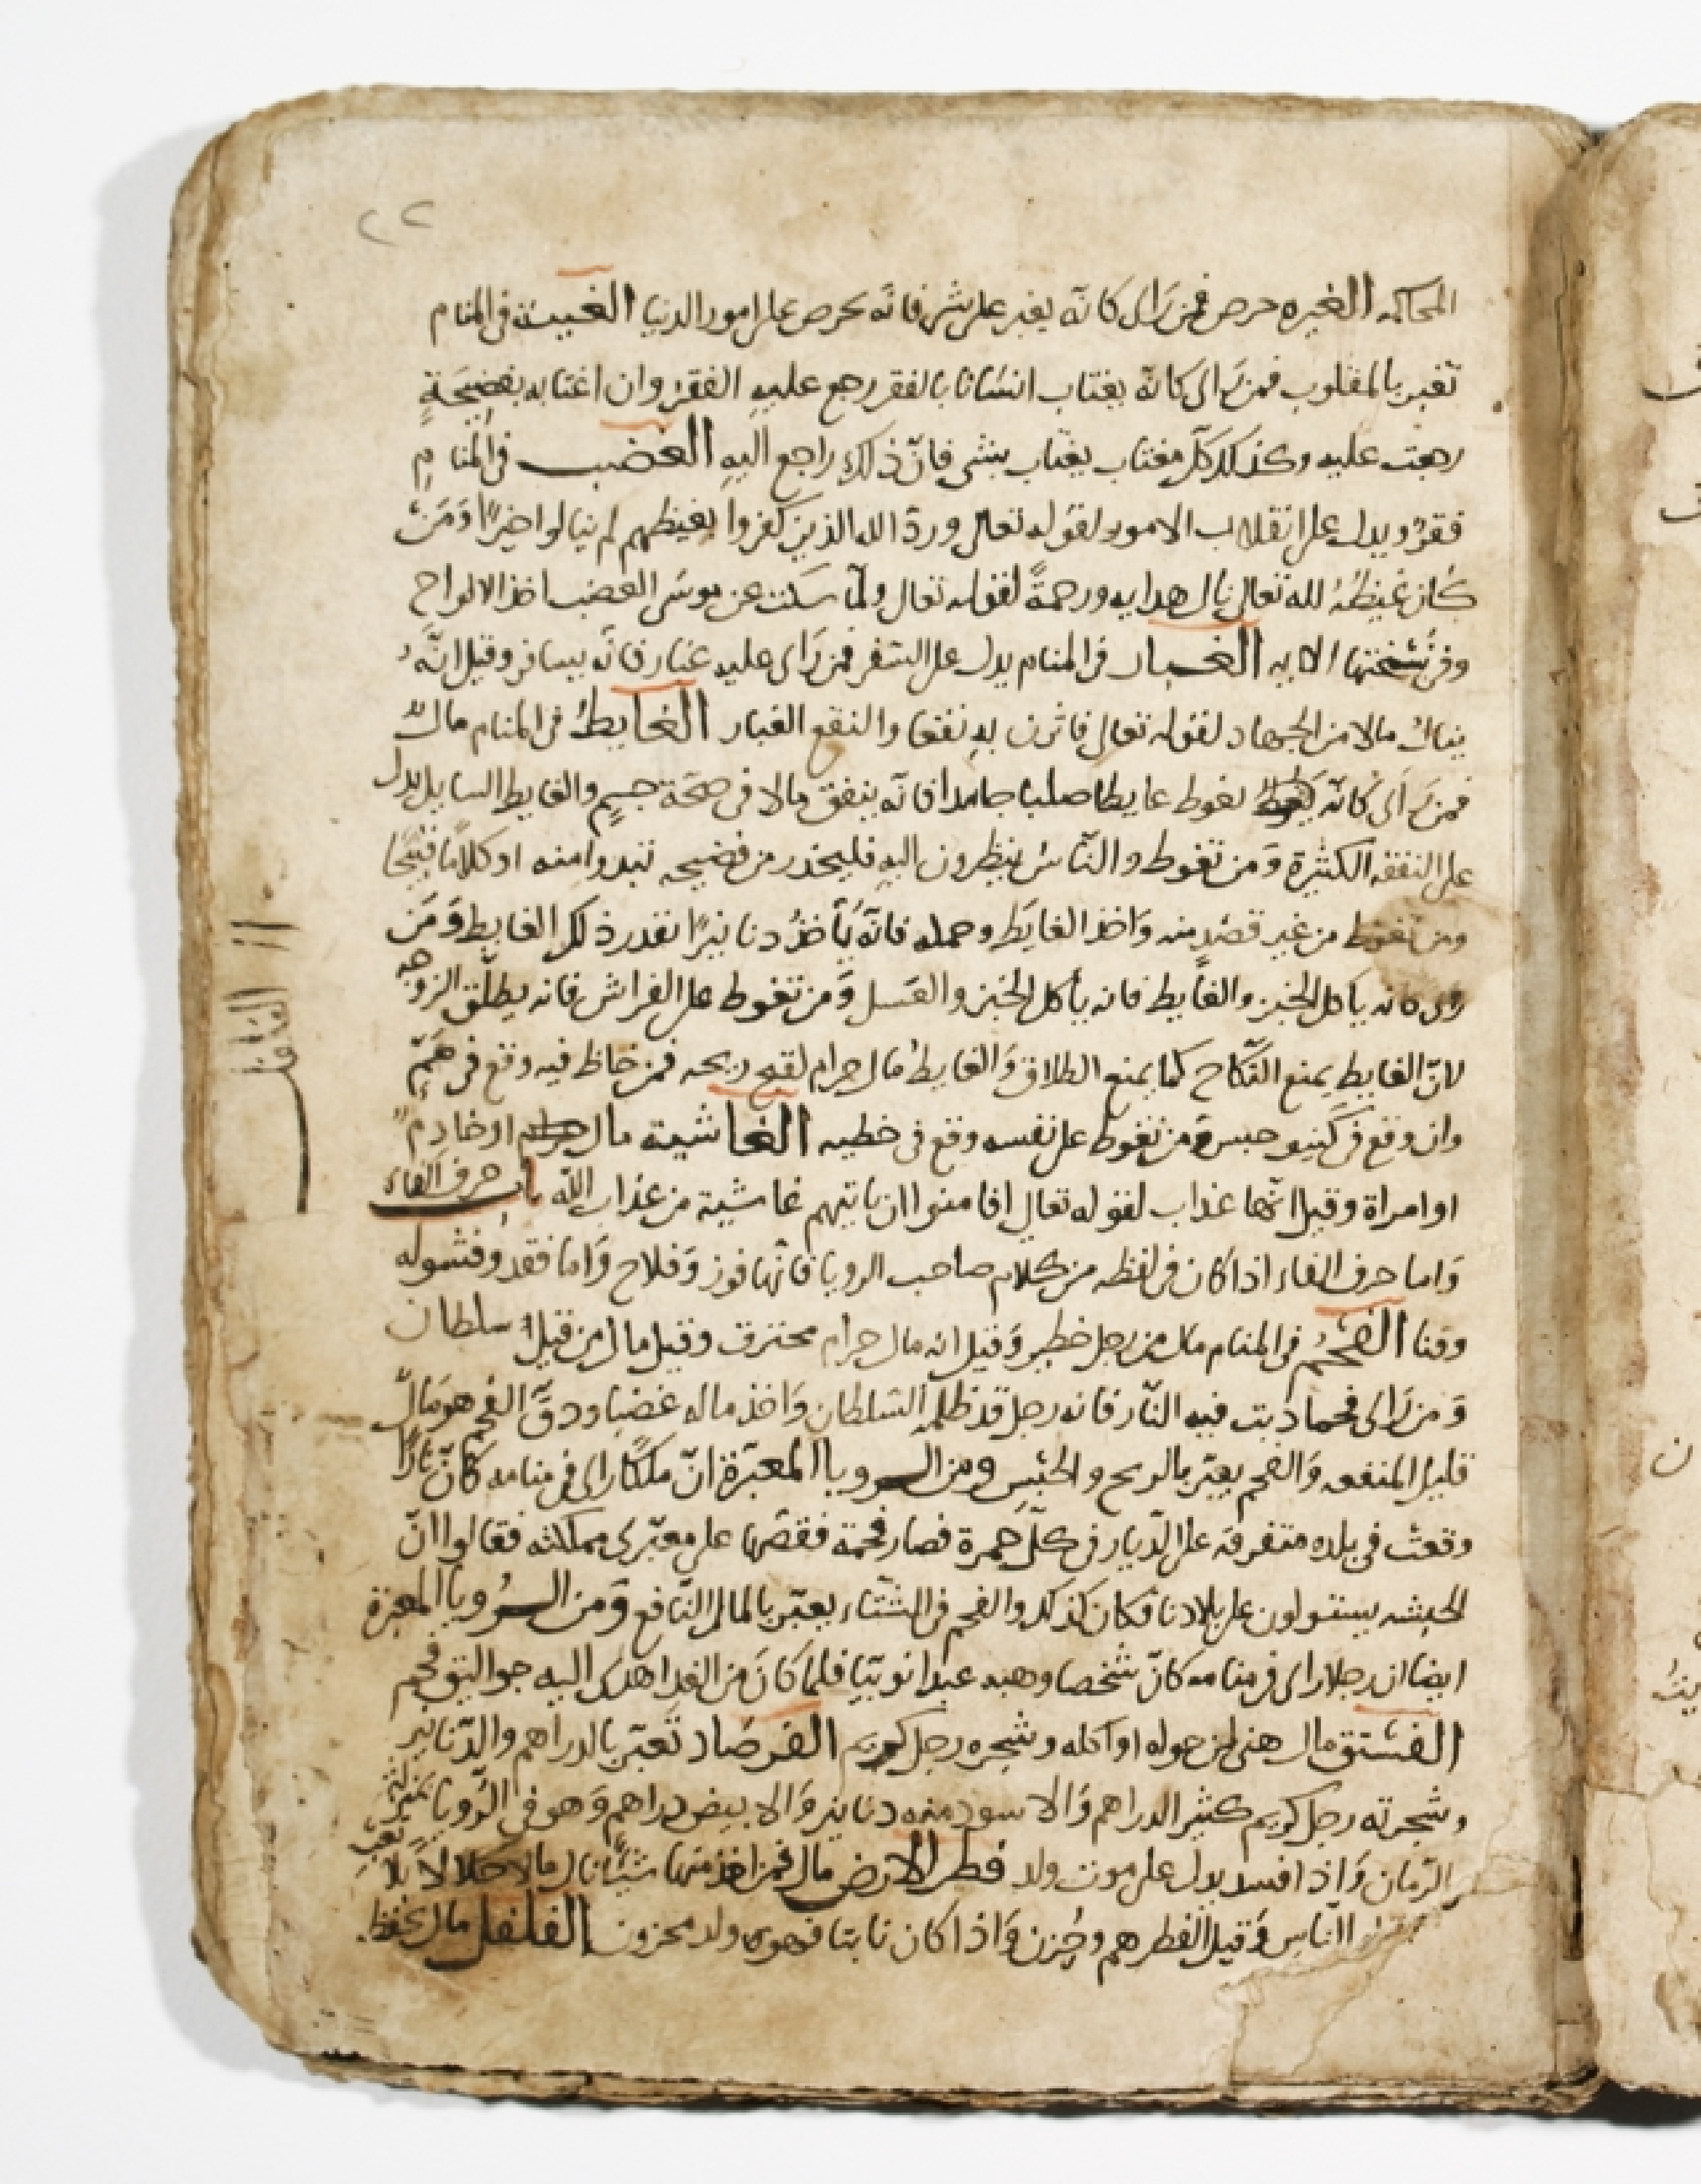 ٢٢
المحاكمه الغيره حرص فمن راى كانه يغير على شى فانه يحرص على امور الدنيا الغيبة فى المنام
تعبر بالمقلوب فمن راى كانّه يغتاب انسانا بالفقر رجع عليه الفقر وان اغتابه بفضيحةٍ
رجعت عليه وكذلك كلّ مغتاب يغتاب بشى فانّ ذلك راجع اليه الغضب فى المنام
فقرٌ ويدل على انقلاب الامور لقوله تعالى وردّ الله الذين كفروا بغيظهم لم ينالوا خيرًا وَمَنْ
كان غيظهُ لله تعالى نال هدايه ورحمةً لقوله تعالى ولمّا سكت عن موسَى الغضب اخذ الالواح
وفى نسختها الايه الغبار فى المنام يدل على السّفر فمن رَاى عليه غبار فانّه يسافر وقيل انّه
ينال مالا من الجهاد لقوله تعالى فاثرن به نقعا والنقع الغبار الغايطُ فى المنام مالٌ
فمن رَاى كانّه يغوط غايطا صلبا جامدا فانّه ينفق مالا فى صحّة جسمٍ والغايط السايل يدل
على النفقه الكثيرة وَمن تغوط والنّاسُ ينظرون اليه فليحذر من فضيحه تبدوا منه او كلامًا قبيحًا
ومن تغوط من غير قصْدٍ منه وَاخذ الغايَط وحمله فانّه يَأخذُ دنانيرًا بقدر ذلك الغايط وَمَن
راى كانه ياكل الخبز والغايط فانه يأكل الخبز والعَسل وَمن تغوط على الفراش فانه يطلّق الزوجه
لانّ الغايط يمنع النّكاح كما يمنع الطلاق وَالغايطُ مال حرام لقبح ريحه فمن خاط فيه وقع فى همٍّ
وان وقع فى كنيف حبس وَمن تغوط على نفسه وقع فى خطيه الغاشية مال او خادمٌ
او امراة وقيل انّها عذاب لقوله تعالى افامنوا ان تاتيهم غاشية من عذاب اللّه باب حرف الفاء
وَاما حرف الفاء اذا كان فى لفظه من كلام صاحب الرويا فانّها فوز وَفلاح وَاما فقدٌ وفشوله
وفنا الفحْمُ فى المنام مال من رجل خطير وَقيل انه مال حرام محترق وقيل مال من قبل سلطان
وَمن رَاى فحما دبت فيه النّار فانه رجل قد ظلمه السّلطان وَاخذ ماله غصْبا ودقُّ الفحم هو مَالٌ
قليل المنفعه وَالفحم يعبّر بالربح والحبْس ومن الرويا المعبّرة انّ ملكًا راى فى منامه كانّ نارًا
وقعت فى بلده متفرقه على الدّيار فى كلّ جمرة فصار فحمة فقصّها على معبّرى مملكته فقالوا انّ
الحبشه يستولون على بلادنا فكان كذلك والفحم فى الشّتاء يعبّر بالمال النّافع وَمن الرُويا المعبرة
ايضا ان رجلا راى فى منامه كانّ شخصا وهبه عبدا نوبيّا فلما كانَ من الغد اهدَى اليه جواليق فحم
الفستق مال هنى لمن حوله او اكله وشجره رجل كريم الفرصَاد تعبّر بالدراهم والدّنانير
وشجرته رجل كريم كثير الدراهم وَالاسود منه دنانير وَالابيض دراهم وَهو فى الرّويا بمنزلة
الرّمان وَاذا افسد يدل على موت ولد فطر الارض مال فمن اخذ منها شيئًا نال مالا حلالا بلا تعب
النّاس وَقيل الفطر هم وحُزن وَاذا كان نابتا فهو ولد محزون الفلفل مال يحفظ